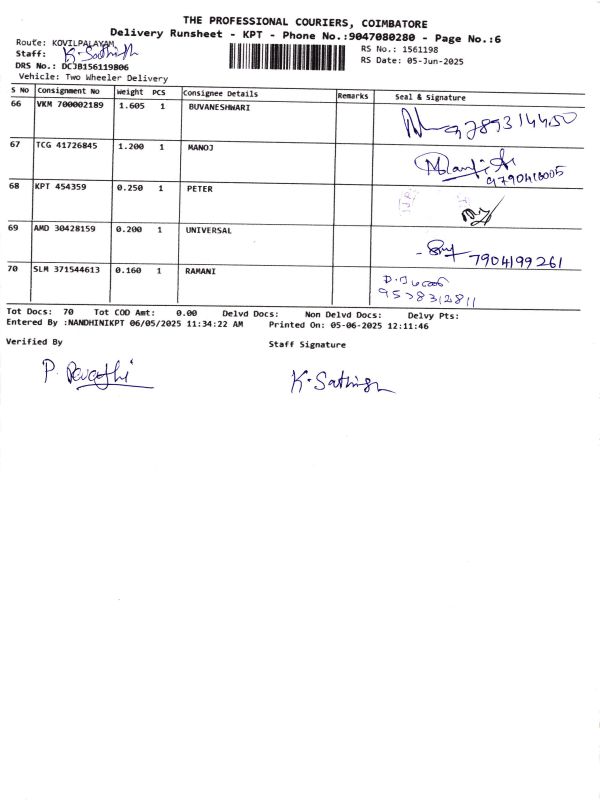 THE PROFESSIONAL COURIERS, COIMBATORE
Delivery Runsheet - KPT - Phone No.:9047080280 - Page No.:6
Route: KOVILPALAYAM
RS No.: 1561198
Staff: K. Sathish
RS Date: 05-Jun-2025
DRS No.: DCJB156119806
Vehicle: Two Wheeler Delivery
S No Consignment No Weight PCS Consignee Details Remarks Seal & Signature
66 VKM 700002189 1.605 1 BUVANESHWARI 9789314450
67 TCG 41726845 1.200 1 MANOJ
9790418005
68 KPT 454359 0.250 1 PETER
69 AMD 30428159 0.200 1 UNIVERSAL
7904199261
70 SLM 371544613 0.160 1 RAMANI
9578312811
Tot Docs: 70 Tot COD Amt: 0.00 Delvd Docs: Non Delvd Docs: Delvy Pts:
Entered By :NANDHINIKPT 06/05/2025 11:34:22 AM Printed On: 05-06-2025 12:11:46
Verified By Staff Signature
P. Revathi K. Sathish